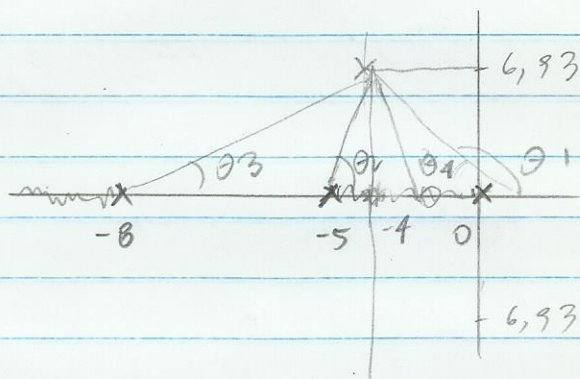 6,93
θ3 θ2 θ4 θ1
-8 -5 -4 0
6,93